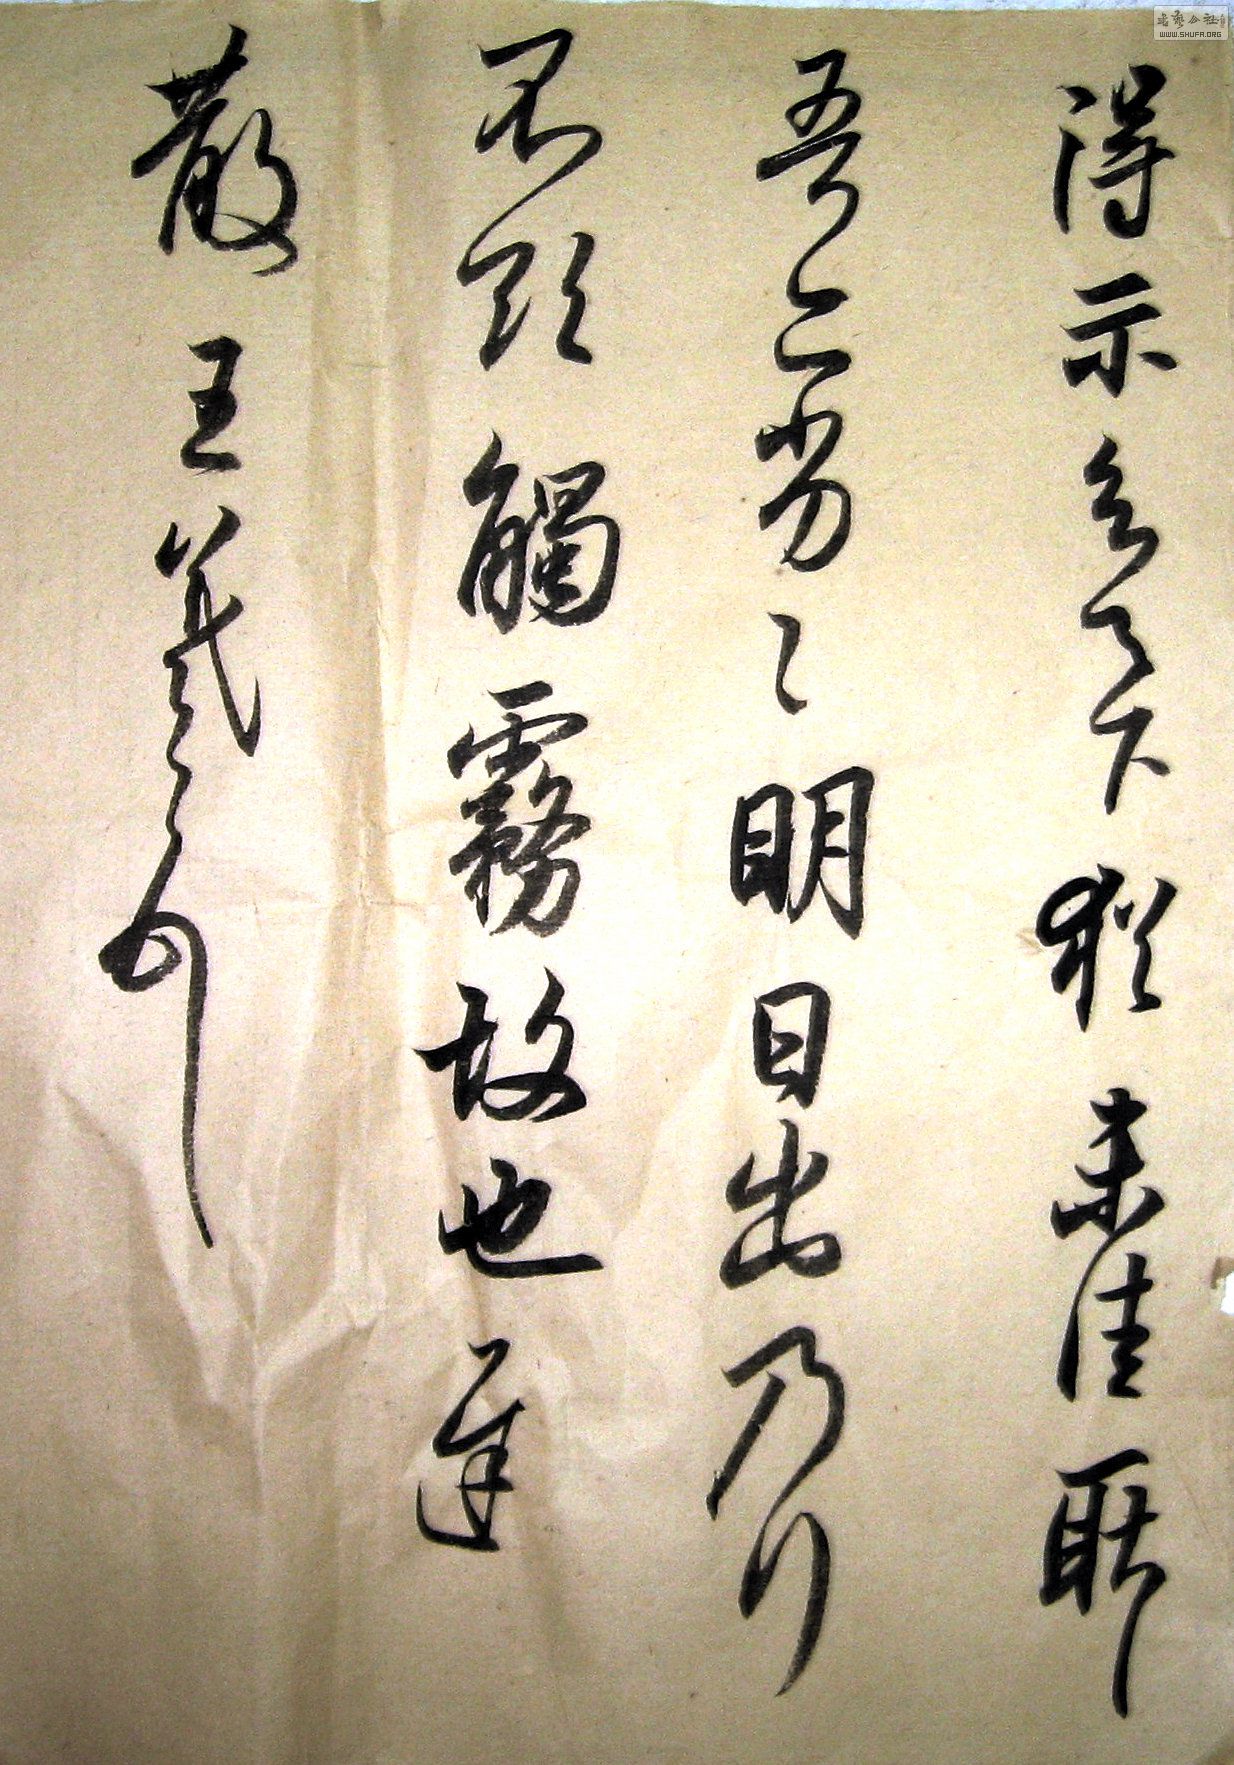 得示知足下猶未佳耿
吾亦劣劣明日出乃行
不欲觸霧故也遲
散王羲之頓首
書藝公社
WWW.SHUFA.ORG